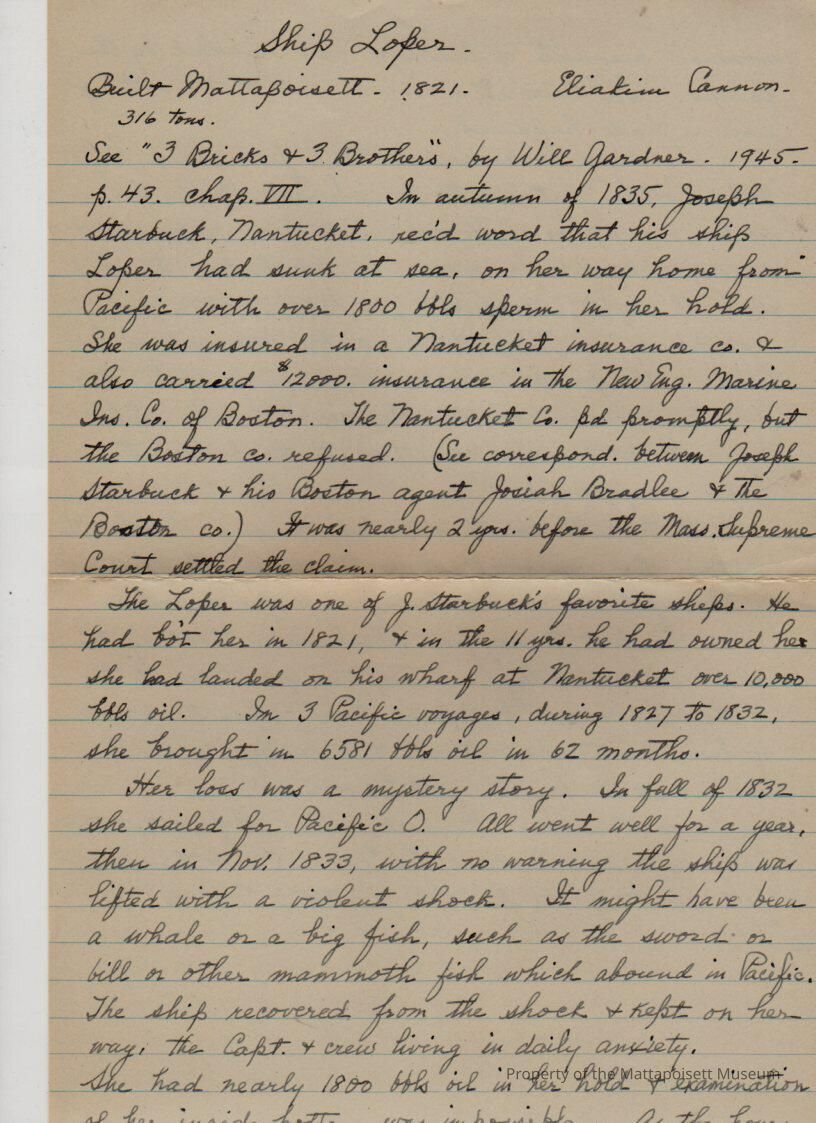 Ship Loper.
Built Mattapoisett - 1821. Eliakim Cannon.
316 tons.
See "3 Bricks & 3 Brothers", by Will Gardner. 1945.
p. 43. chap. VII. In autumn of 1835, Joseph
Starbuck, Nantucket, rec'd word that his ship
Loper had sunk at sea, on her way home from
Pacific with over 1800 bbls sperm in her hold.
She was insured in a Nantucket insurance co. &
also carried $12000. insurance in the New Eng. Marine
Ins. Co. of Boston. The Nantucket Co. pd promptly, but
the Boston co. refused. (See correspond. between Joseph
Starbuck & his Boston agent Josiah Bradlee & the
Boston co.) It was nearly 2 yrs. before the Mass. Supreme
Court settled the claim.
The Loper was one of J. Starbuck's favorite ships. He
had bo't her in 1821, & in the 11 yrs. he had owned her
she had landed on his wharf at Nantucket over 10,000
bbls oil. In 3 Pacific voyages, during 1827 to 1832,
she brought in 6581 bbls oil in 62 months.
Her loss was a mystery story. In fall of 1832
she sailed for Pacific O. All went well for a year,
then in Nov. 1833, with no warning the ship was
lifted with a violent shock. It might have been
a whale or a big fish, such as the sword or
bill or other mammoth fish which abound in Pacific.
The ship recovered from the shock & kept on her
way, the Capt. & crew living in daily anxiety.
She had nearly 1800 bbls oil in her hold & examination
Property of the Mattapoisett Museum
of her inside was impossible. As the